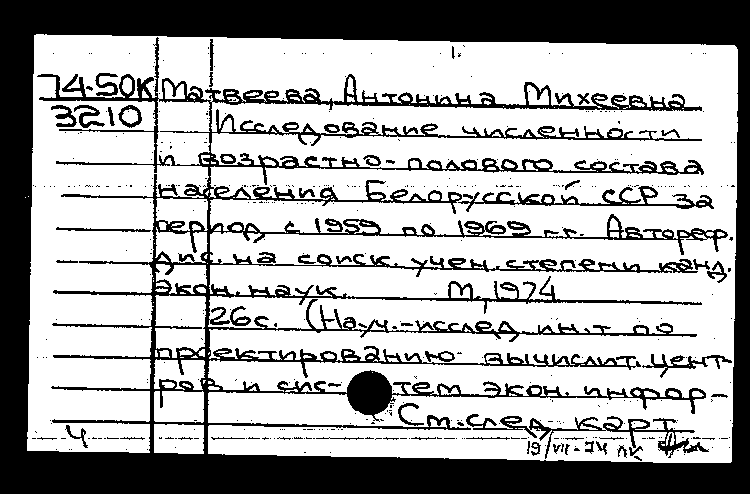 1.
74-50К Матвеева, Антонина Михеевна
3210 Исследование численности
и возрастно-полового состава
населения Белорусской ССР за
период с 1959 по 1969 г.г. Автореф.
дис. на соиск. учен. степени канд.
экон. наук. М., 1974
26с. (Науч.-исслед. ин.т по
проектированию вычислит. цент-
ров и сис-тем экон. инфор-
См. след. карт
Ч
19/VII-74